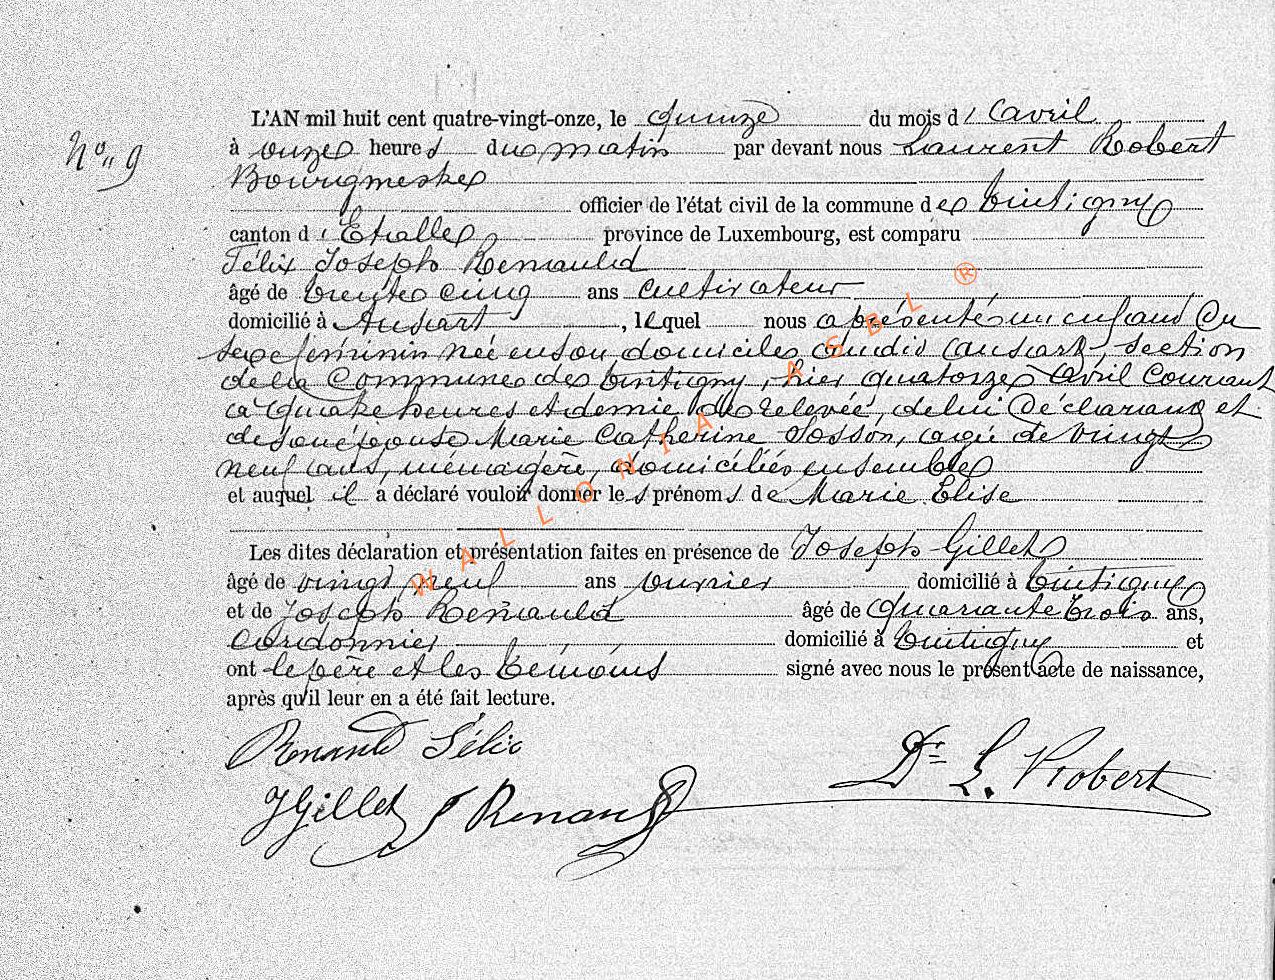 L'AN mil huit cent quatre-vingt-onze, le quinze du mois d'avril
N° 9
à onze heures du matin par devant nous Laurent Robert
Bourgmestre
officier de l'état civil de la commune de Tintigny
canton d'Etalle, province de Luxembourg, est comparu
Félix Joseph Renauld
âgé de trente cinq ans cultivateur
domicilié à Ansart, lequel nous a présenté un enfant du
sexe féminin née en son domicile audit Ansart, section
de la Commune de Tintigny, hier quatorze avril courant
à quatre heures et demie de relevée, de lui Déclarant et
de son épouse Marie Catherine Sosson, agée de vingt
neuf ans, ménagère, domiciliés ensemble
et auquel il a déclaré vouloir donner les prénoms de Marie Elise
Les dites déclaration et présentation faites en présence de Joseph Gillet
âgé de vingt neuf ans ouvrier domicilié à Tintigny
et de Joseph Renauld âgé de quarante trois ans,
cordonnier domicilié à Tintigny et
ont le père et les témoins signé avec nous le présent acte de naissance,
après qu'il leur en a été fait lecture.
Renauld Félix
Dr L. Robert
J Gillet J Renauld
WALLONIA ASBL ®